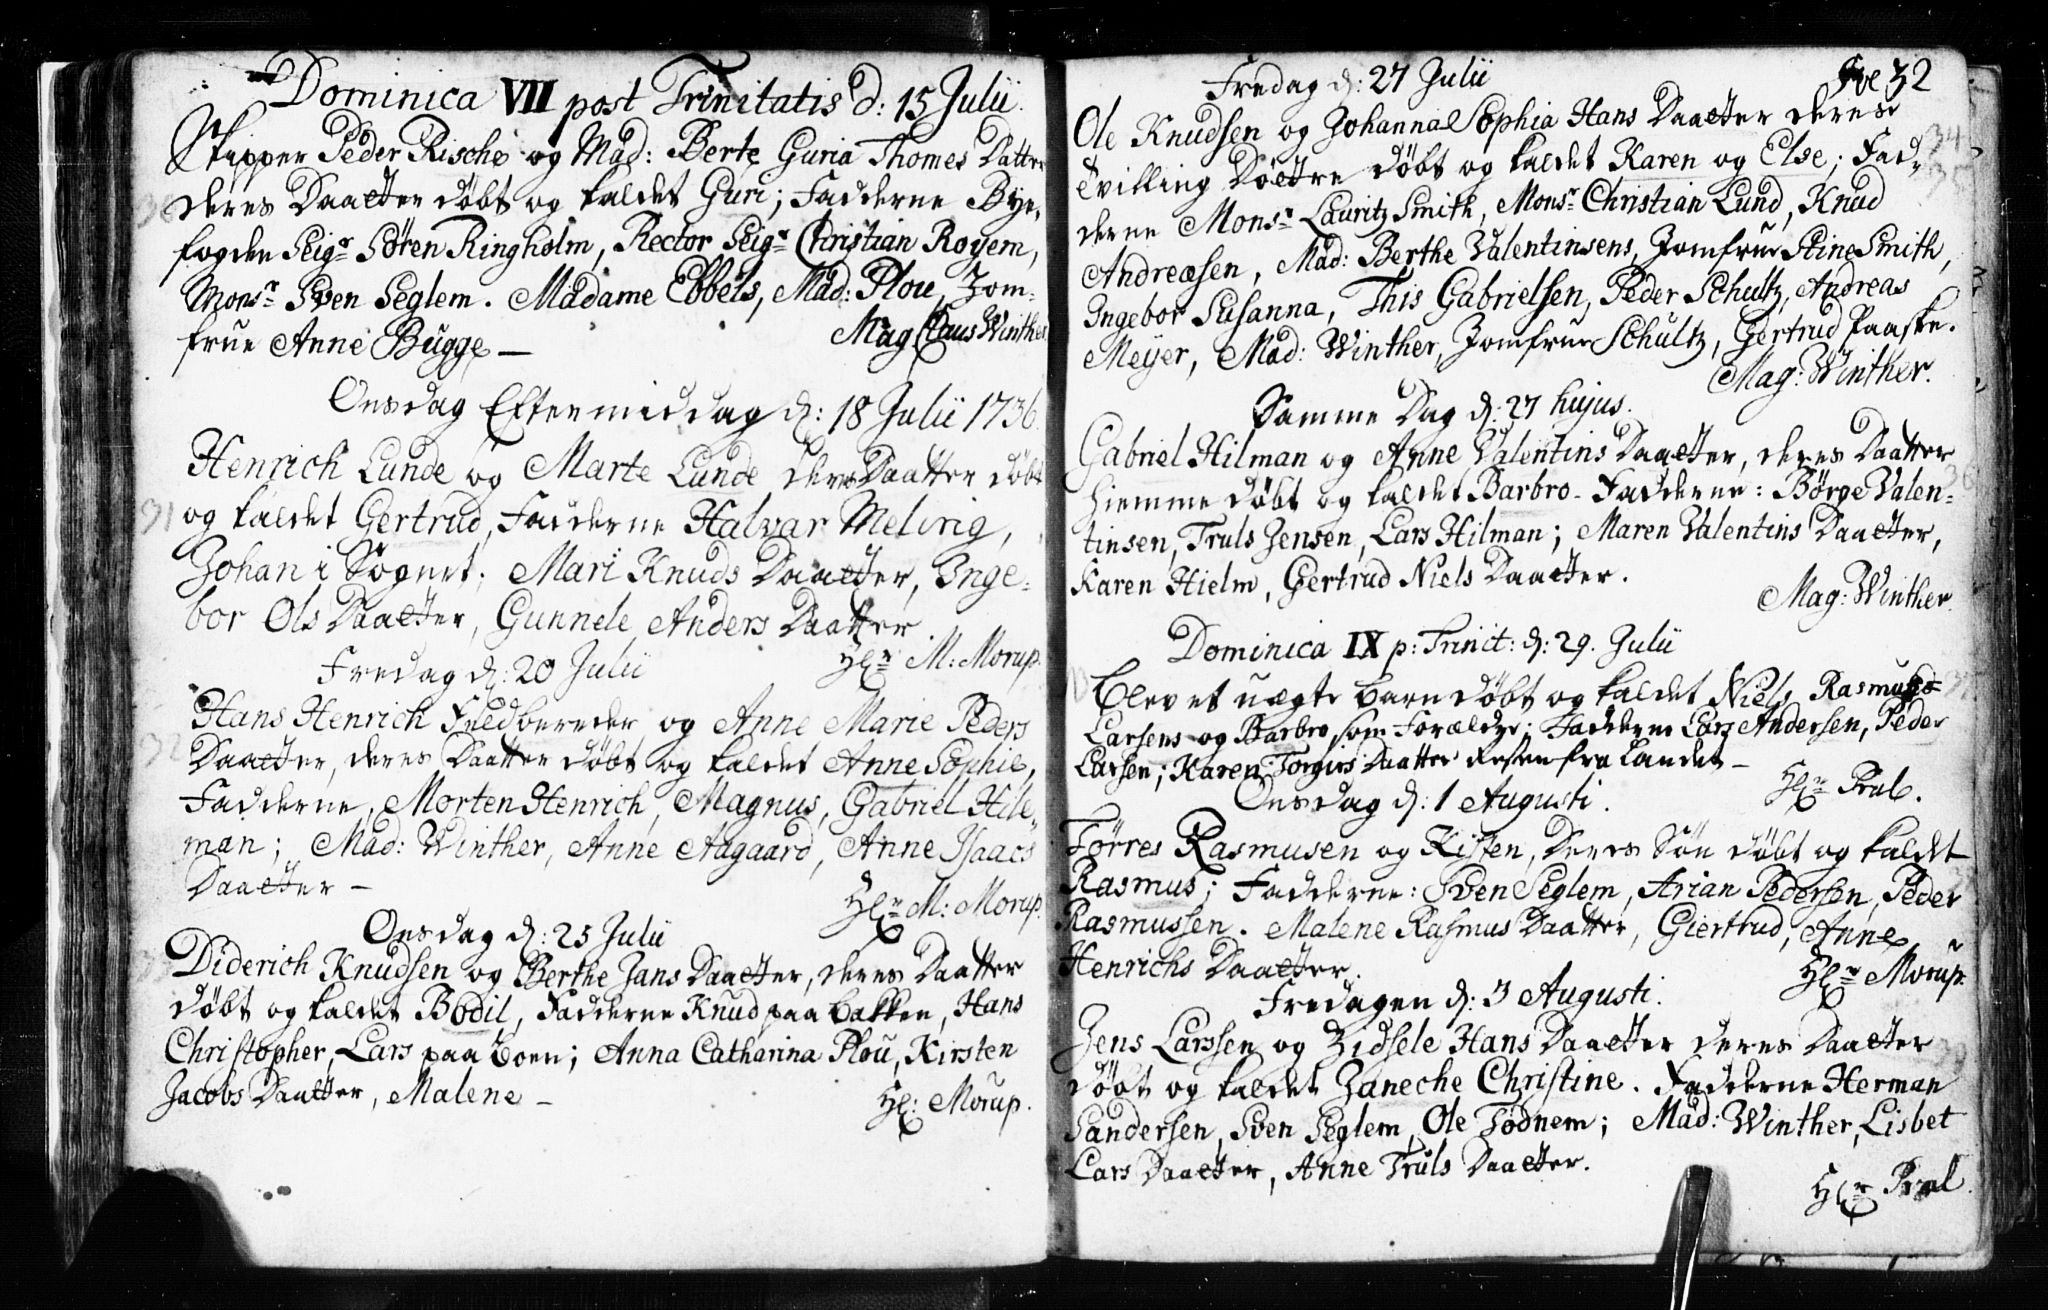 Dominica VII post Trinitatis d: 15 Julii.
Skipper Peder Rische og Mad: Berte Guria Thomes Datter
deres Daatter döbt og kaldet Guri; Fadderne Bye,
fogden Seigr Sören Ringholm, Rector Seigr Christian Royem,
Monsr Sven Seglem. Madame Ebbels, Mad: Plou, Jom-
frue Anne Bugge —
Mag Claus Winther
Onsdag Eftermiddag d: 18 Julii 1736.
Henrich Lunde og Marte Lunde deres Daatter döbt
31
og kaldet Gertrud, Fadderne Halvar Meling,
Johan i Sognet; Mari Knuds Daatter, Inge-
bor Ols Daatter, Gunnele Anders Daatter
Hr M: Morup.
Fredag d: 20 Julii
Hans Henrich Feldbereder og Anne Marie Peders
32
Daatter, deres Daatter döbt og kaldet Anne Sophie,
Fadderne, Morten Henrich, Magnus, Gabriel Hile-
man; Mad: Winther, Anne Aagaard, Anne Isaacs
Daatter —
Hr M: Morup.
Onsdag d: 25 Julii
Diderich Knudsen og Berthe Jans Daatter, deres Daatter
döbt og kaldet Bodil, Fadderne Knud paa Bakken, Hans
Christopher, Lars paa Boen; Anna Catharina Plou, Kirsten
Jacobs Daatter, Malene —
H: Morup.
32
Fredag d: 27 Julii
Ole Knudsen og Johanna Sophia Hans Daatter deres
34
Tvilling Doettre döbt og kaldet Karen og Else; Fad-
35
derne Monsr Lauritz Smith, Monsr Christian Lund, Knud
Andreæsen, Mad: Berthe Valentinsens, Jomfrue Stine Smith,
Ingebor Susanna, This Gabrielsen, Peder Schultz, Andreas
Meyer, Mad: Winther, Jomfrue Schultz, Gertrud Paaske.
Mag: Winther.
Samme Dag d: 27 hujus.
Gabriel Hilman og Anne Valentins Daatter, deres Daatter
36
hiemme döbt og kaldet Barbro - Fadderne: Börge Valen-
tinsen, Truls Jensen, Lars Hilman; Maren Valentins Daatter,
Karen Hielm, Gertrud Niels Daatter.
Mag: Winther.
Dominica IX p: Trinit: d: 29. Julii
Blev et uægte barn döbt og kaldet Niels, Rasmus
Larsens og Barbro som Forældre; Fadderne Lars Andersen, Peder
Larsen; Karen Torgirs Daatter fra Landet —
Hr Pral.
Onsdag d: 1 Augusti.
Törres Rasmusen og Kisten, deres Sön döbt og kaldet
Rasmus; Fadderne: Sven Seglem, Arian Pedersen, Peder
Rasmussen. Malene Rasmus Daatter, Giertrud, Anne
Henrichs Daatter.
Hr Morup.
Fredagen d: 3 Augusti.
Jens Larssen og Zidsele Hans Daatter deres Daatter
döbt og kaldet Janeche Christine. Fadderne Herman
Sandersen, Sven Seglem, Ole Tödnem; Mad: Winther, Lisbet
Lars Daatter, Anne Truls Daatter.
Hr Pral.